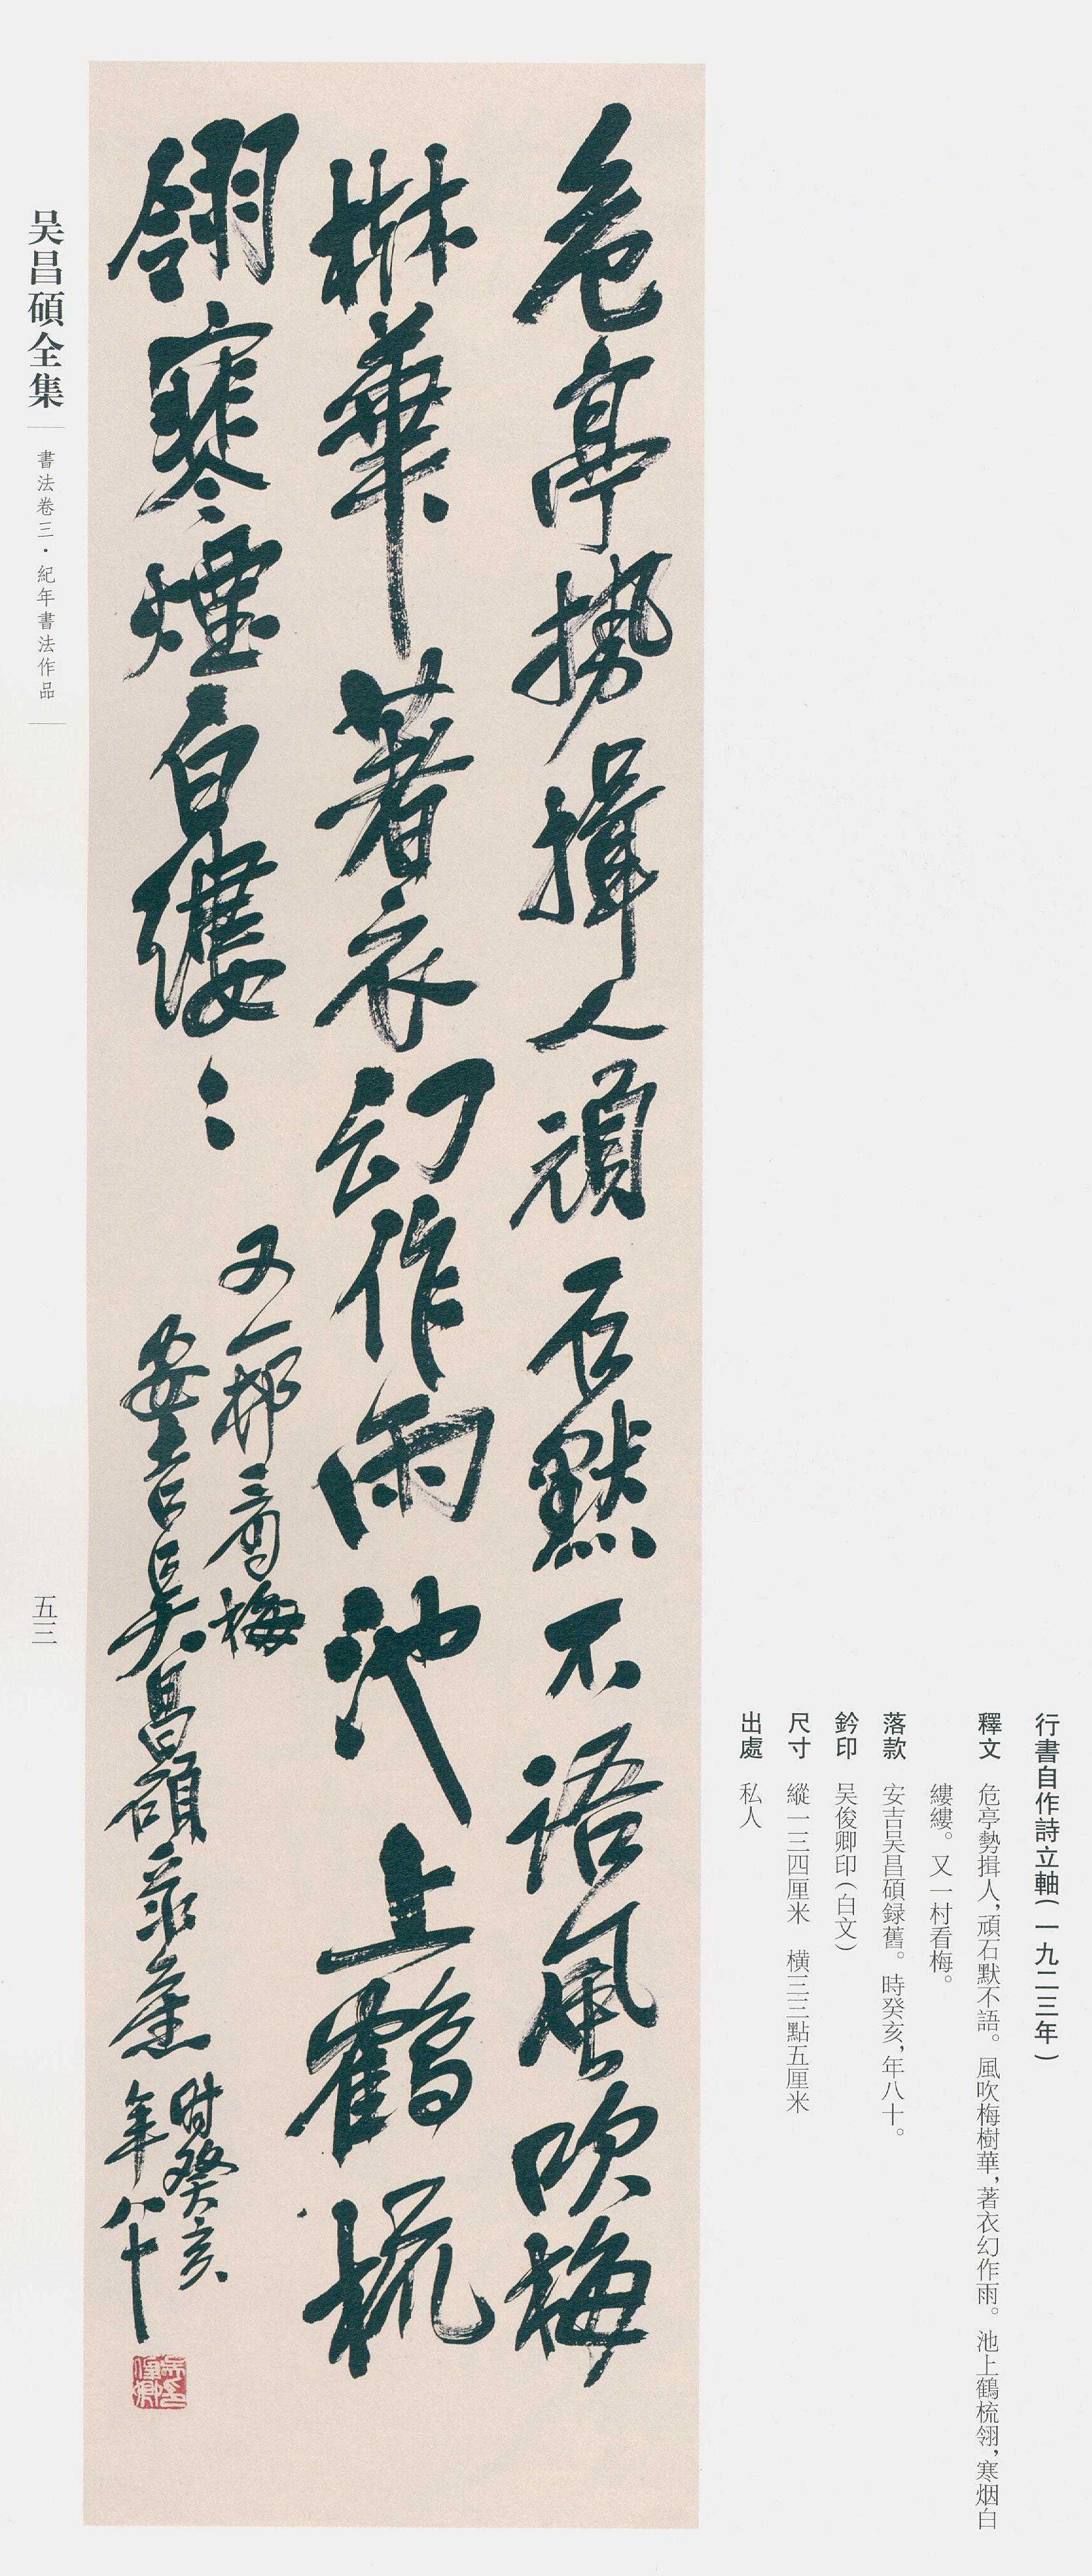 行書自作詩立軸(一九二三年)
釋文 危亭勢揖人,頑石默不語。風吹梅樹華,著衣幻作雨。池上鶴梳翎,寒烟白
縷縷。又一村看梅。
落款 安吉吴昌碩録舊。時癸亥,年八十。
鈐印 吴俊卿印(白文)
尺寸 縱一三四厘米 橫三三點五厘米
出處 私人
危亭勢揖人頑石默不語風吹梅
樹華著衣幻作雨池上鶴梳
翎寒煙白縷〻
又一邨看梅
安吉吳昌碩录舊
時癸亥
年八十
吳俊卿印
吴昌碩全集
書法卷三·紀年書法作品
五三